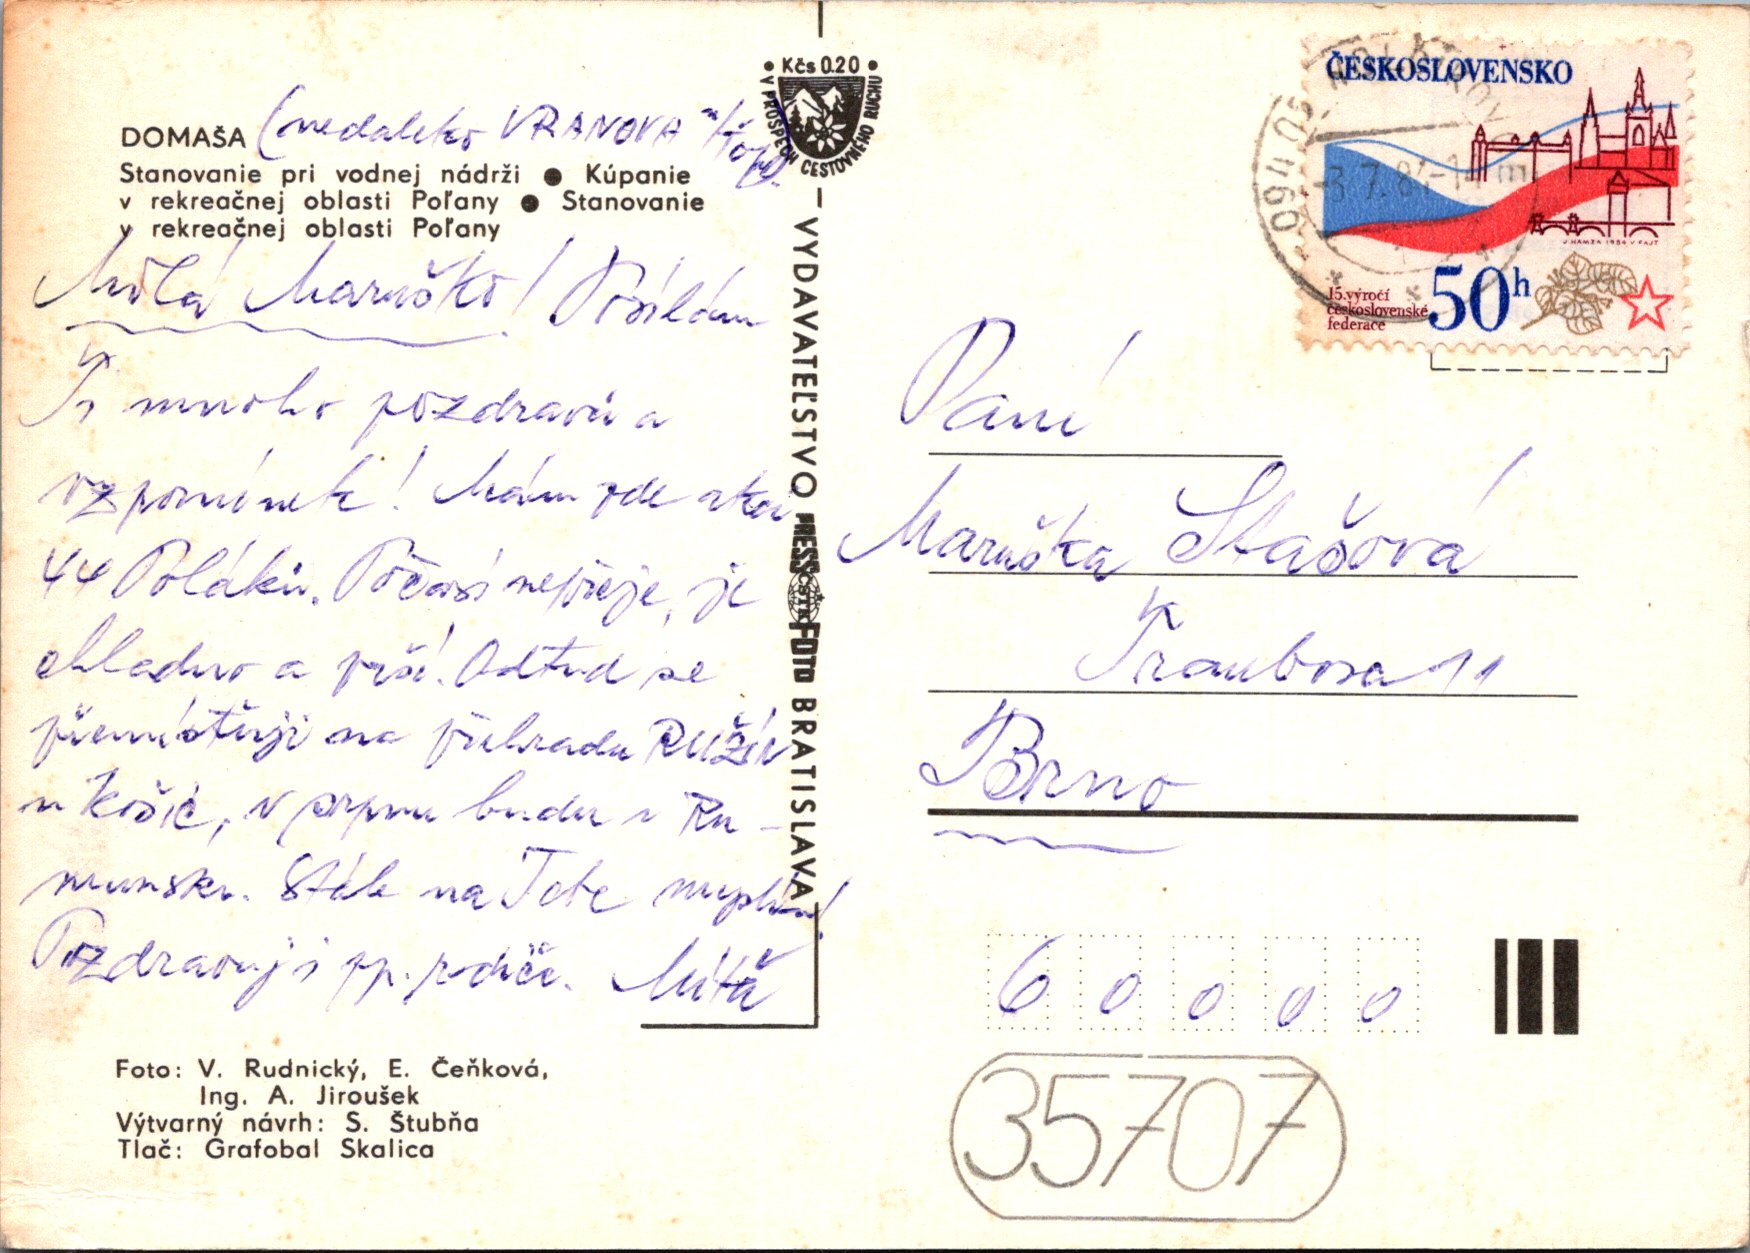 DOMAŠA (nedaleko VRANOVA n/Top.)
Stanovanie pri vodnej nádrži ● Kúpanie
v rekreačnej oblasti Poľany ● Stanovanie
v rekreačnej oblasti Poľany
Milá Maruško! Posílám
Ti mnoho pozdravů a
vzpomínek! Mám zde
44 Poláků. Počasí nepřeje, je
chladno a prší. Odtud se
přemístňuji na přehradu RUŽÍN
u Košic, v srpnu budu v Ru-
munsku. Stále na Tebe myslím!
Pozdravuj i pp. rodiče. Mítá
Foto: V. Rudnický, E. Čeňková,
Ing. A. Jiroušek
Výtvarný návrh: S. Štubňa
Tlač: Grafobal Skalica
Kčs 0.20
V PROSPECH CESTOVNÉHO RUCHU
VYDAVATEĽSTVO PRESSFOTO BRATISLAVA
ČSTK
ČESKOSLOVENSKO
J. HAMZA 1984 V. FAJT
15.výročí
československé
federace
50h
094 05
-3.7.84-14
Paní
Maruška Stašová
Traubova 11
Brno
60000
35707